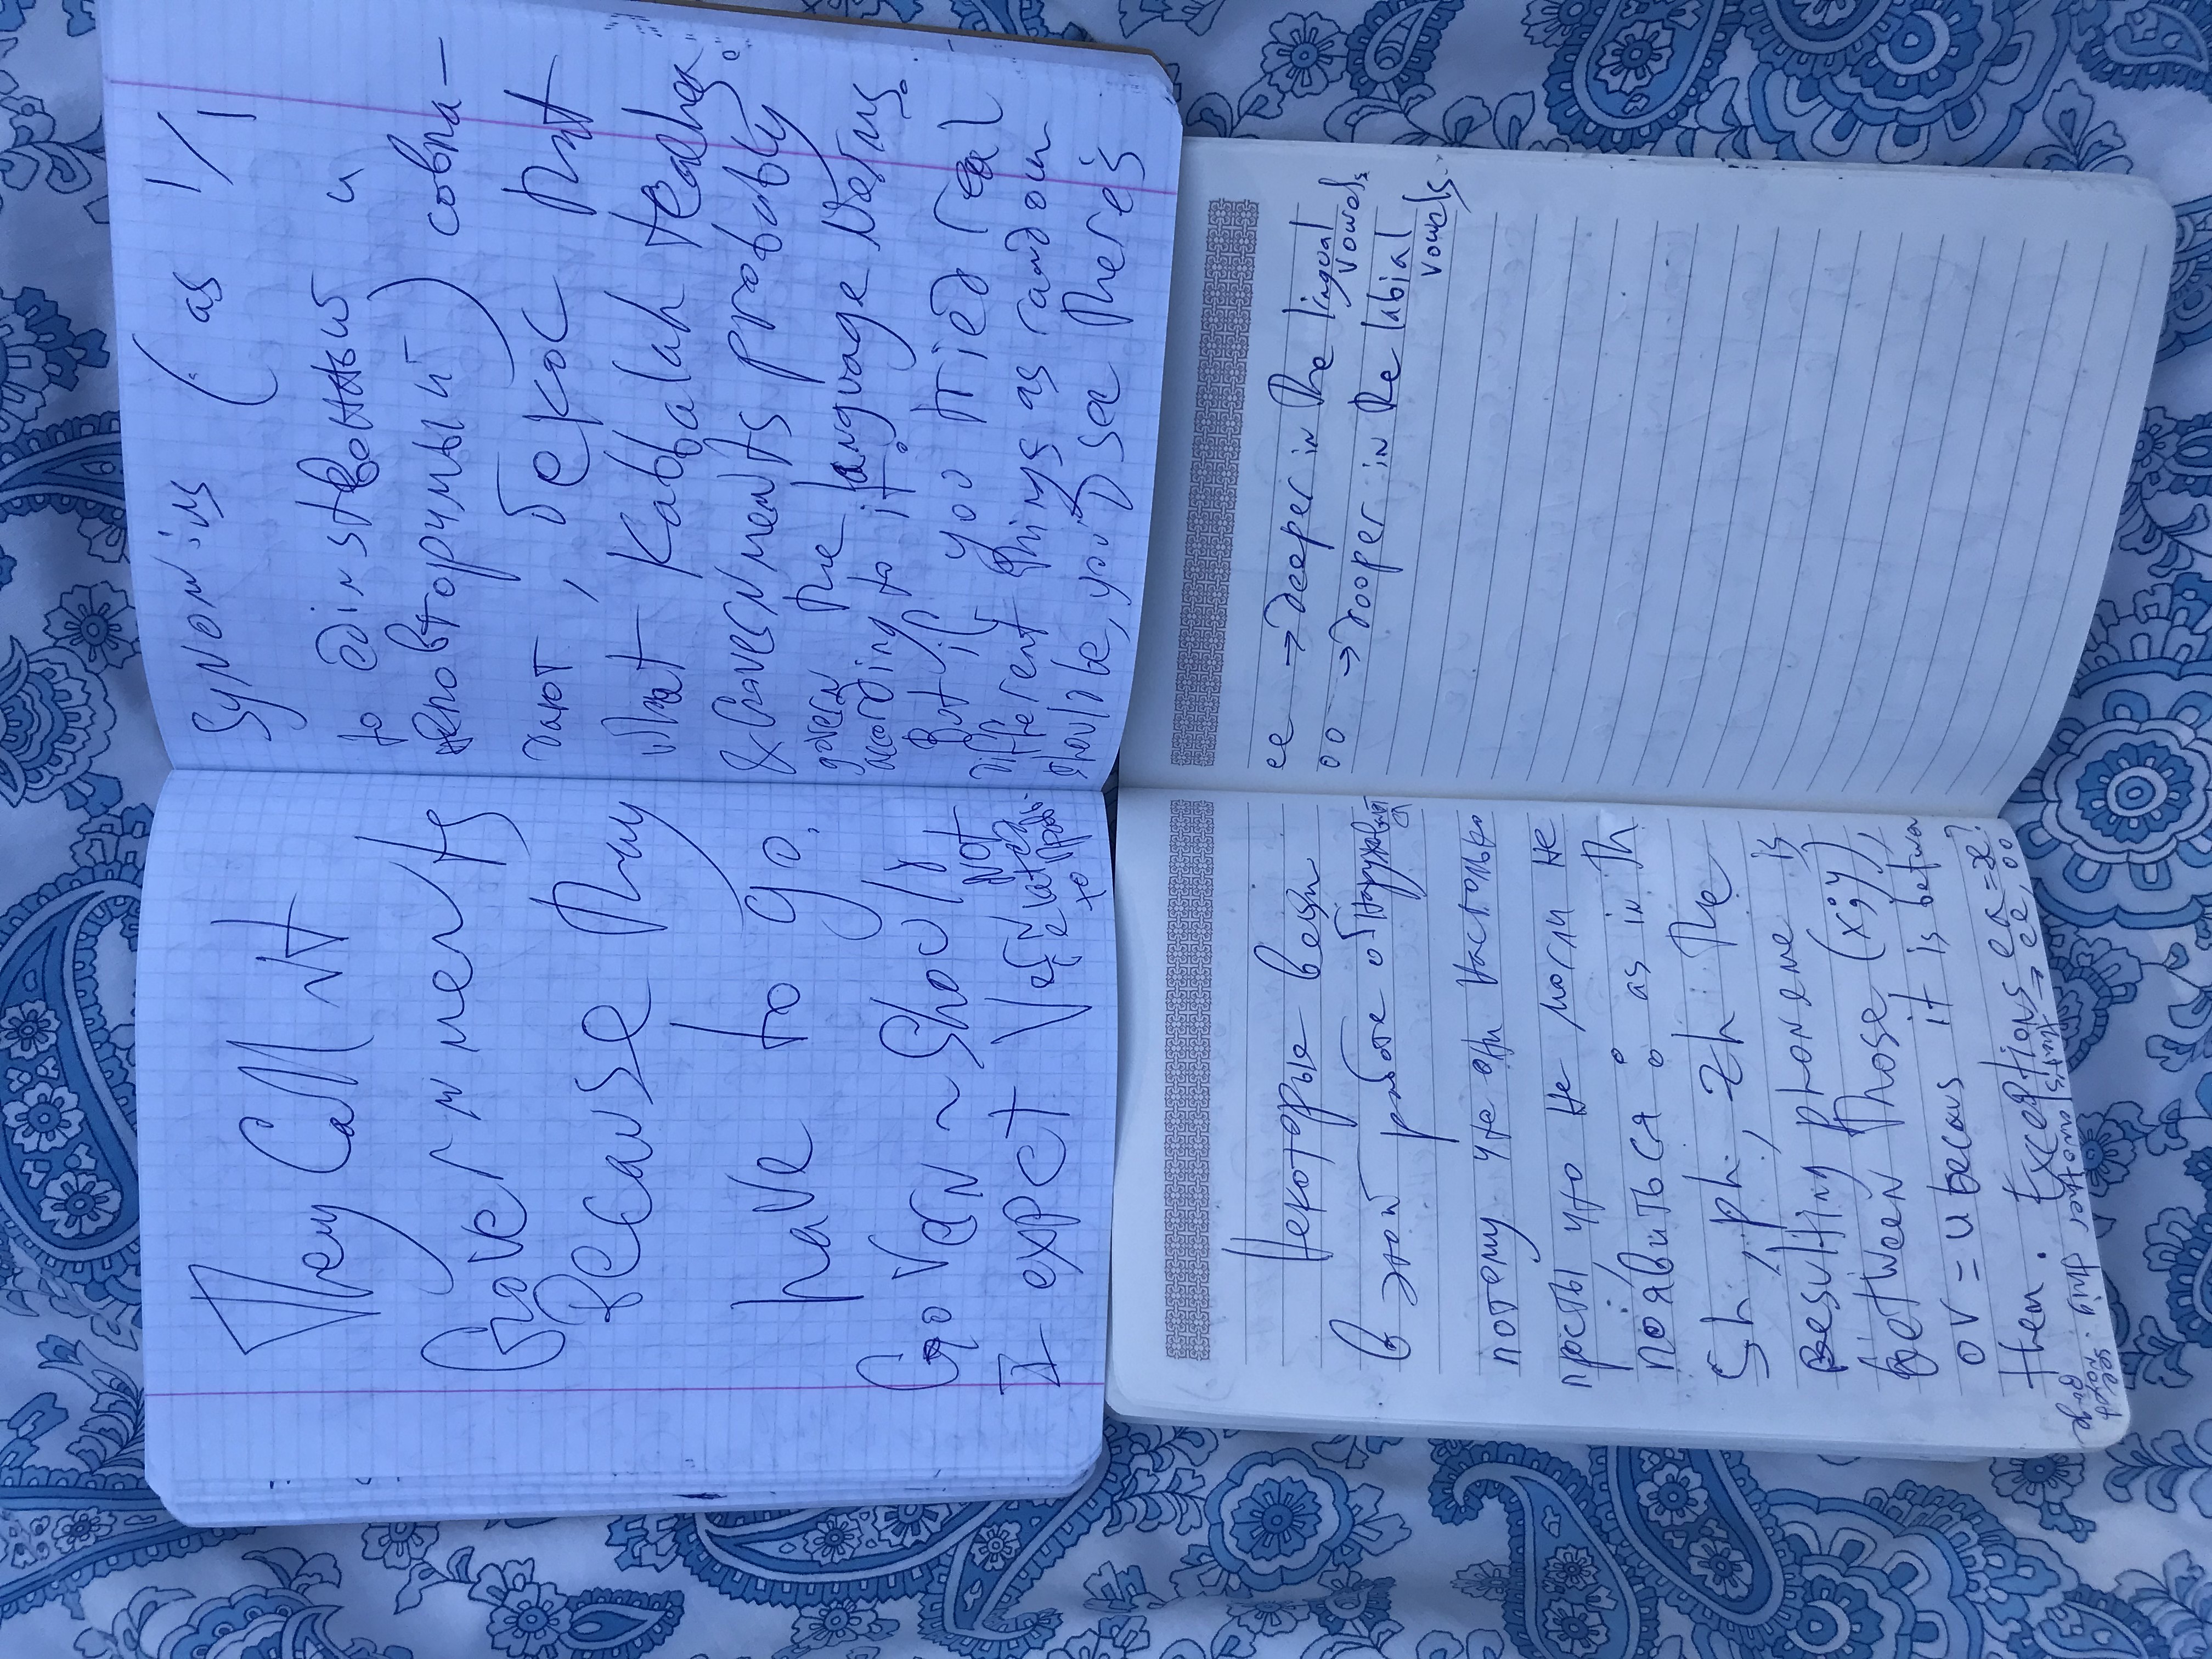 They Call it
Governments
Because Thay
have to go.
Govern ~ Should
NOT
I expect Vern related
to
Synonims (as 1/1
to edinstвенный и
неповторимый) совпа-
дают, бекос that
what Kabbalah teaches
& Governments probably
govern the language
according to it.
But if you tried real
different things as random
should be, you'd see there's
Некоторые вещи
в этой работе обнаруживаются
потому что они настолько
просты, что не могли не
появиться: as in th
Sh, ph, zh the
resulting phoneme is
between those (x;y),
ov = u becaus it is betwen
them. Exceptions ea = æ?
ee, oo
that's another thing. see next page
ee → deeper in the lingual
vowels
oo → dooper in the labial
vowels.